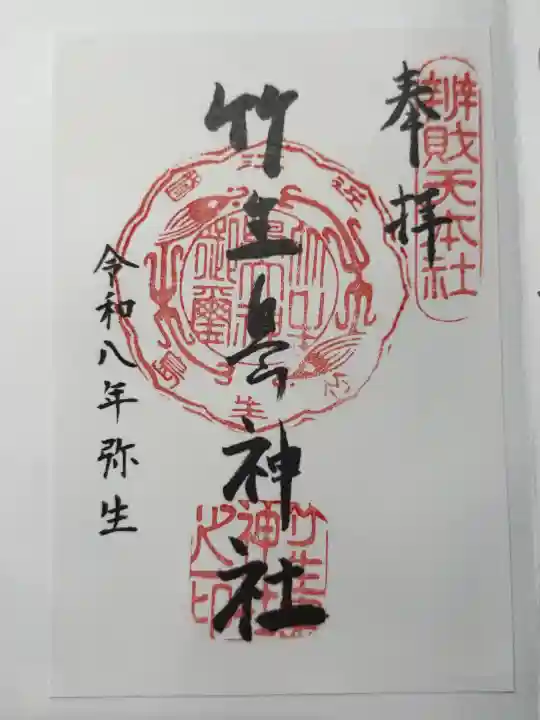 辨財天本社
奉拝
竹生島神社
令和八年弥生
近江國
竹生島
竹生島神社之印